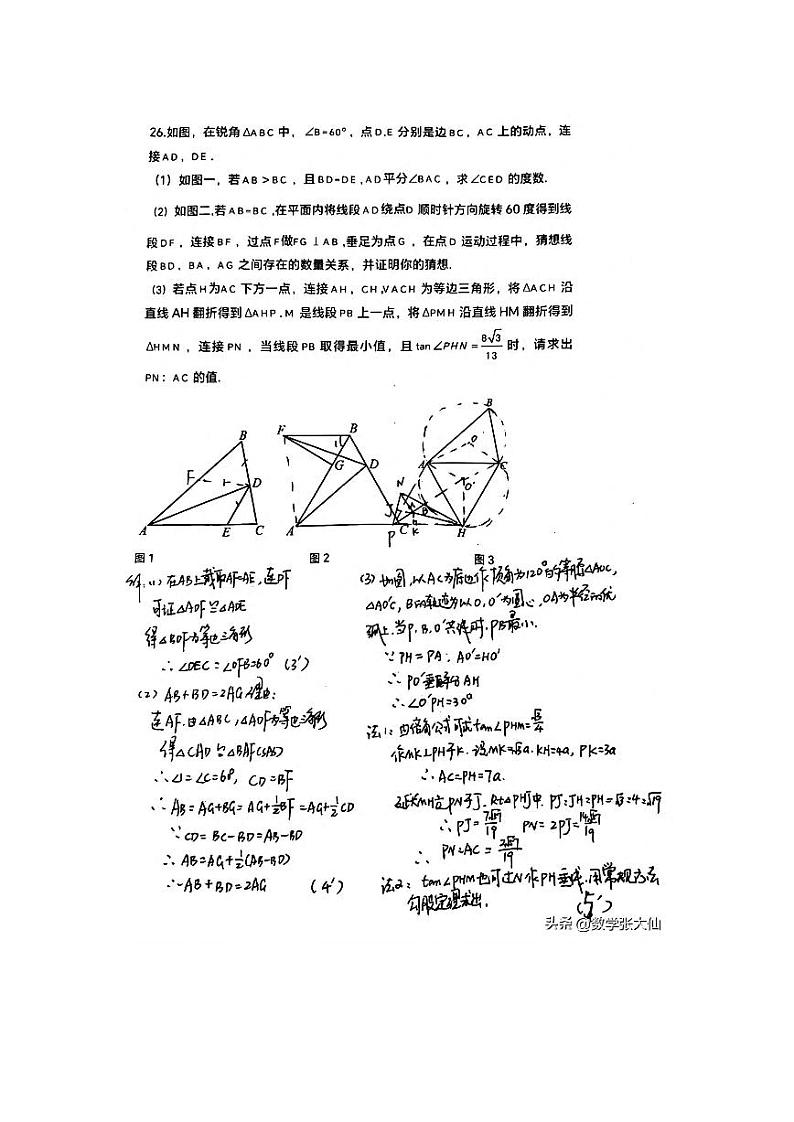 26.如图，在锐角△ABC 中，∠B=60°，点 D.E 分别是边 BC，AC 上的动点，连
接AD，DE．
（1）如图一，若AB＞BC，且BD=DE,AD平分∠BAC，求∠CED 的度数.
（2）如图二,若AB=BC,在平面内将线段AD绕点D 顺时针方向旋转 60 度得到线
段DF，连接BF，过点F做FG⊥AB,垂足为点G，在点D运动过程中，猜想线
段BD，BA，AG 之间存在的数量关系，并证明你的猜想.
（3）若点H为AC 下方一点，连接AH，CH,VACH 为等边三角形，将△ACH 沿
直线 AH 翻折得到△AHP.M 是线段PB上一点，将△PMH 沿直线 HM 翻折得到
△HMN，连接PN，当线段PB 取得最小值，且 tan∠PHN=8√3/13 时，请求出
PN：AC 的值.
图1
图2
图3
解:(1)在AB上截取AF=AE,连DF
可证△ADF≌△ADE
得△BDF为等边三角形
∴∠DEC=∠DFB=60° (3′)
(2) AB+BD=2AG 理由:
连AF.由△ABC,△ADF为等边三角形
得△CAD≌△BAF(SAS)
∴∠1=∠C=60, CD=BF
∴AB=AG+BG=AG+½BF=AG+½CD
∵CD=BC-BD=AB-BD
∴AB=AG+½(AB-BD)
∴AB+BD=2AG (4′)
(3)如图,以AC为底边作顶角为120°的等腰△AOC,
△AO′C,B的轨迹为以O,O′为圆心,OA为半径的优
弧上.当P.B.O′共线时,PB最小.
∵PH=PA.AO′=HO′
∴PO′垂直平分AH
∴∠O′PH=30°
法1:由倍角公式可求tan∠PHM=√3/4
作MK⊥PH于K.设MK=√3a.KH=4a,PK=3a
∴AC=PH=7a.
延长MH交PN于J.Rt△PHJ中.PJ:JH:PH=√3:4:√19
∴PJ=
PN=2PJ=
∴PN:AC=
法2:tan∠PHM也可过N作PH垂线.用常规方法
勾股定理求出.
(5′)
头条 @数学张大仙